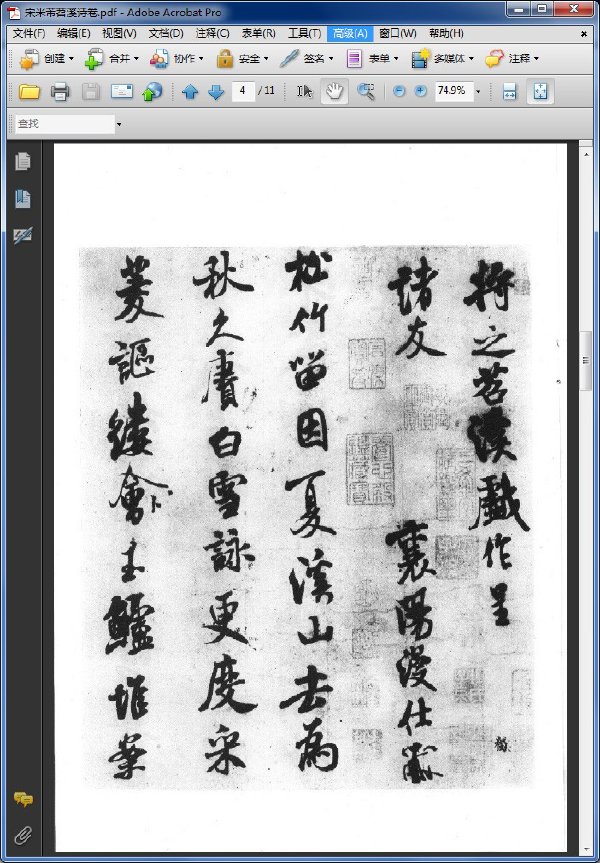 宋米芾苕溪诗卷.pdf - Adobe Acrobat Pro
文件(F) 编辑(E) 视图(V) 文档(D) 注释(C) 表单(R) 工具(T) 高级(A) 窗口(W) 帮助(H)
创建 合并 协作 安全 签名 表单 多媒体 注释
4 / 11 74.9%
查找
將之苕溪戲作呈
諸友 襄陽漫仕黻
松竹留因夏溪山去為
秋久賡白雪詠更度采
菱謳縷會玉鱸堆案